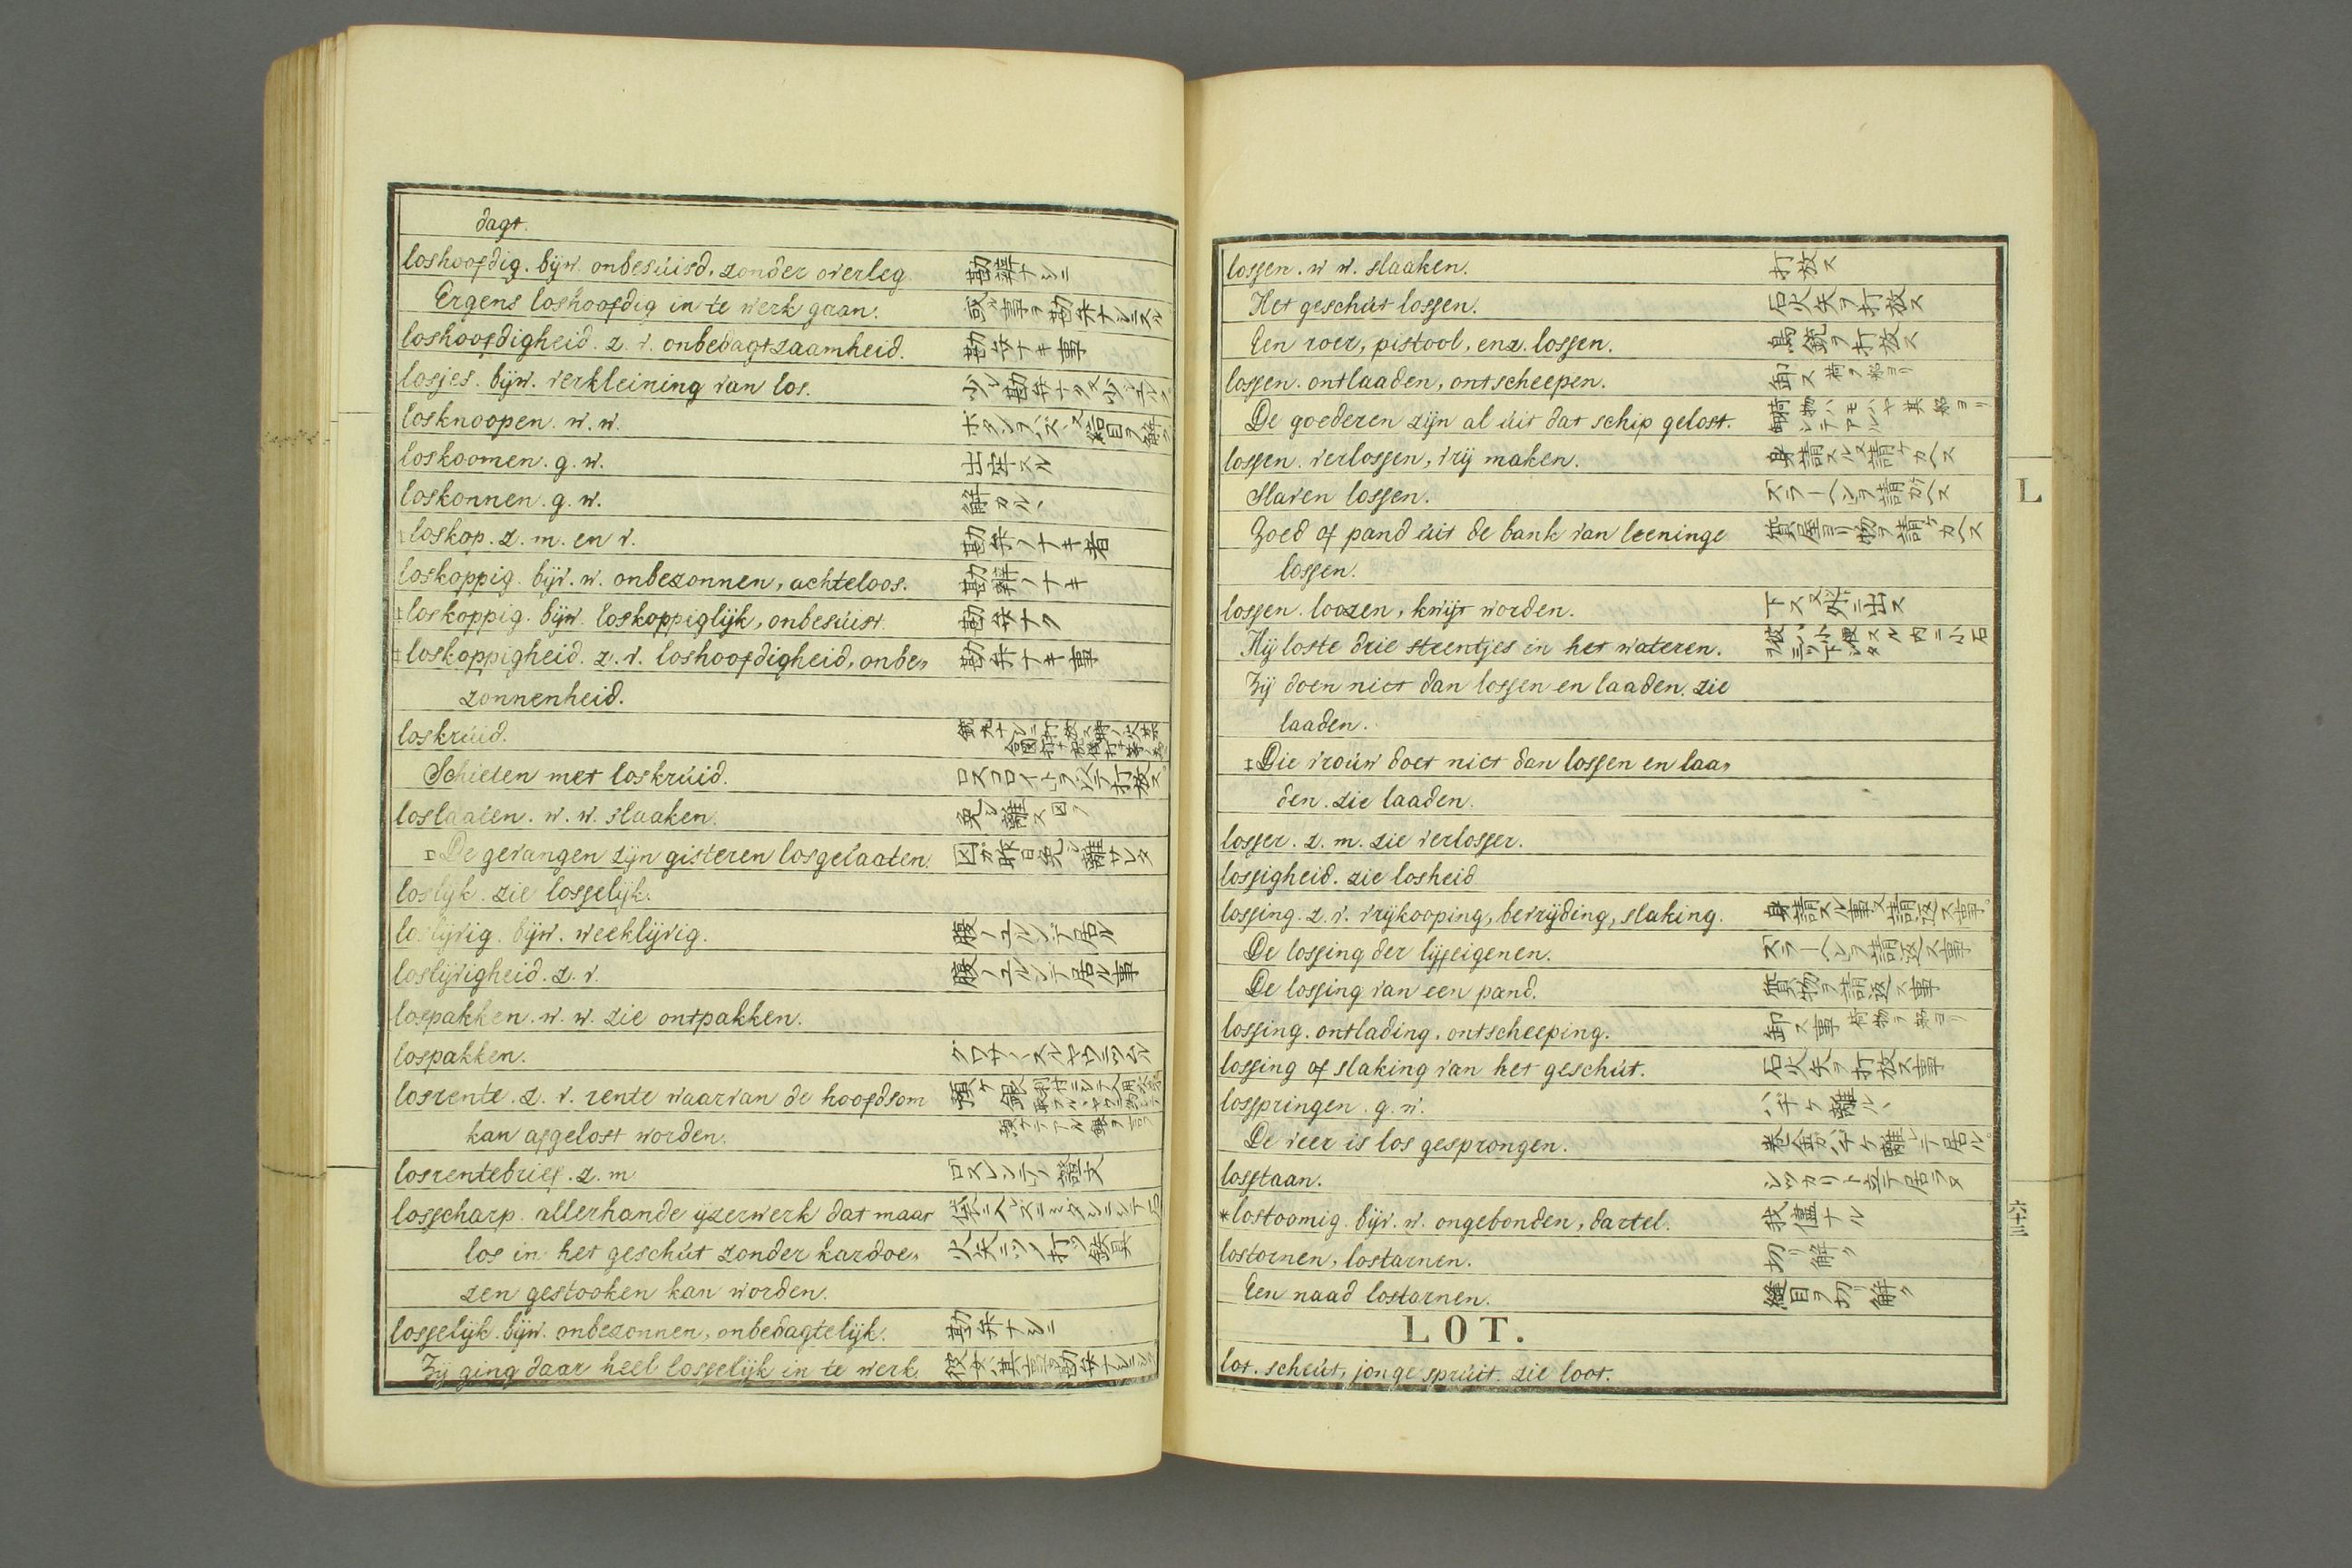 dagt.
loshoofdig. bijw. onbesúisd, zonder overleg 勘辨ナシニ
Ergens loshoofdig in te werk gaan. 或ル事ヲ勘弁ナシニスル
loshoofdigheid. z. v. onbedagtzaamheid. 勘弁ナキ事
losjes. bijw. verkleining van los.
losknoopen. w. w.
loskoomen. g. w. 出牢スル
loskonnen. g. w. 解カル丶
loskop. z. m. en v. 勘弁ノナキ者
loskoppig. bijv. w. onbezonnen, achteloos. 勘辨ノナキ
‡loskoppig. bijw. loskoppiglijk, onbesúist. 勘弁ナク
‡loskoppigheid. z. v. loshoofdigheid, onbe„ 勘弁ナキ事
zonnenheid.
loskrúid.
Schieten met loskrúid.
loslaaten. w. w. slaaken. 免シ離ス
De gevangen zijn gisteren losgelaaten. 囚ガ昨日免シ離サレタ
loslijk. zie losselijk.
loslijvig. bijw. weeklijvig. 腹ノユルンデ居ル
loslijvigheid. z. v. 腹ノユルンデ居ル事
lospakken. w. w. zie ontpakken.
lospakken.
losrente. z. v. rente waarvan de hoofdsom
kan afgelost worden.
losrentebrief. z. m ロスレンテノ證文
losscharp. allerhande ijzerwerk dat maar
los in het geschút zonder kardoe„
zen gestooken kan worden.
losselijk. bijw. onbezonnen, onbedagtelijk. 勘弁ナシニ
Zij ging daar heel losselijk in te werk.
lossen. w w. slaaken. 打放ス
Het geschút lossen. 石火矢ヲ打放ス
Een roer, pistool, enz. lossen. 鳥銃ヲ打放ス
lossen. ontlaaden, ontscheepen. 卸ス 荷ヲ船ヨリ
De goederen zijn al úit dat schip gelost.
lossen. verlossen, vrij maken. 身請スル又請ケカヘス
Slaven lossen. スラーヘンヲ請ケカヘス
Goed of pand úit de bank van leeninge 質屋ヨリ物ヲ請ケカヘス
lossen.
lossen. loozen, kwijt worden. 下ス又外ニ出ス
Hij loste drie steentjes in het wateren.
Zij doen niet dan lossen en laaden. zie
laaden.
‡Die vroúw doet niet dan lossen en laa„
den. zie laaden.
losser. z. m. zie verlosser.
lossigheid. zie losheid
lossing. z. v. vrijkooping, bevrijding, slaking. 身請スル事又請返ス事
De lossing der lijfeigenen. スラーヘンヲ請返ス事
De lossing van een pand. 質物ヲ請返ス事
lossing. ontlading. ontscheeping. 卸ス事 荷物ヲ船ヨリ
lossing of slaking van het geschút. 石火矢ヲ打放ス事
losspringen. g. w. ハヂケ離ル丶
De veer is los gesprongen. 巻金ガハヂケ離レテ居ル
losstaan.
*lostoomig. bijv. w. ongebonden, dartel. 我儘ナル
lostornen, lostarnen. 切リ解ク
Een naad lostarnen. 縫目ヲ切リ解ク
LOT.
lot. scheút, jonge sprúit. zie loot.
L
六十三